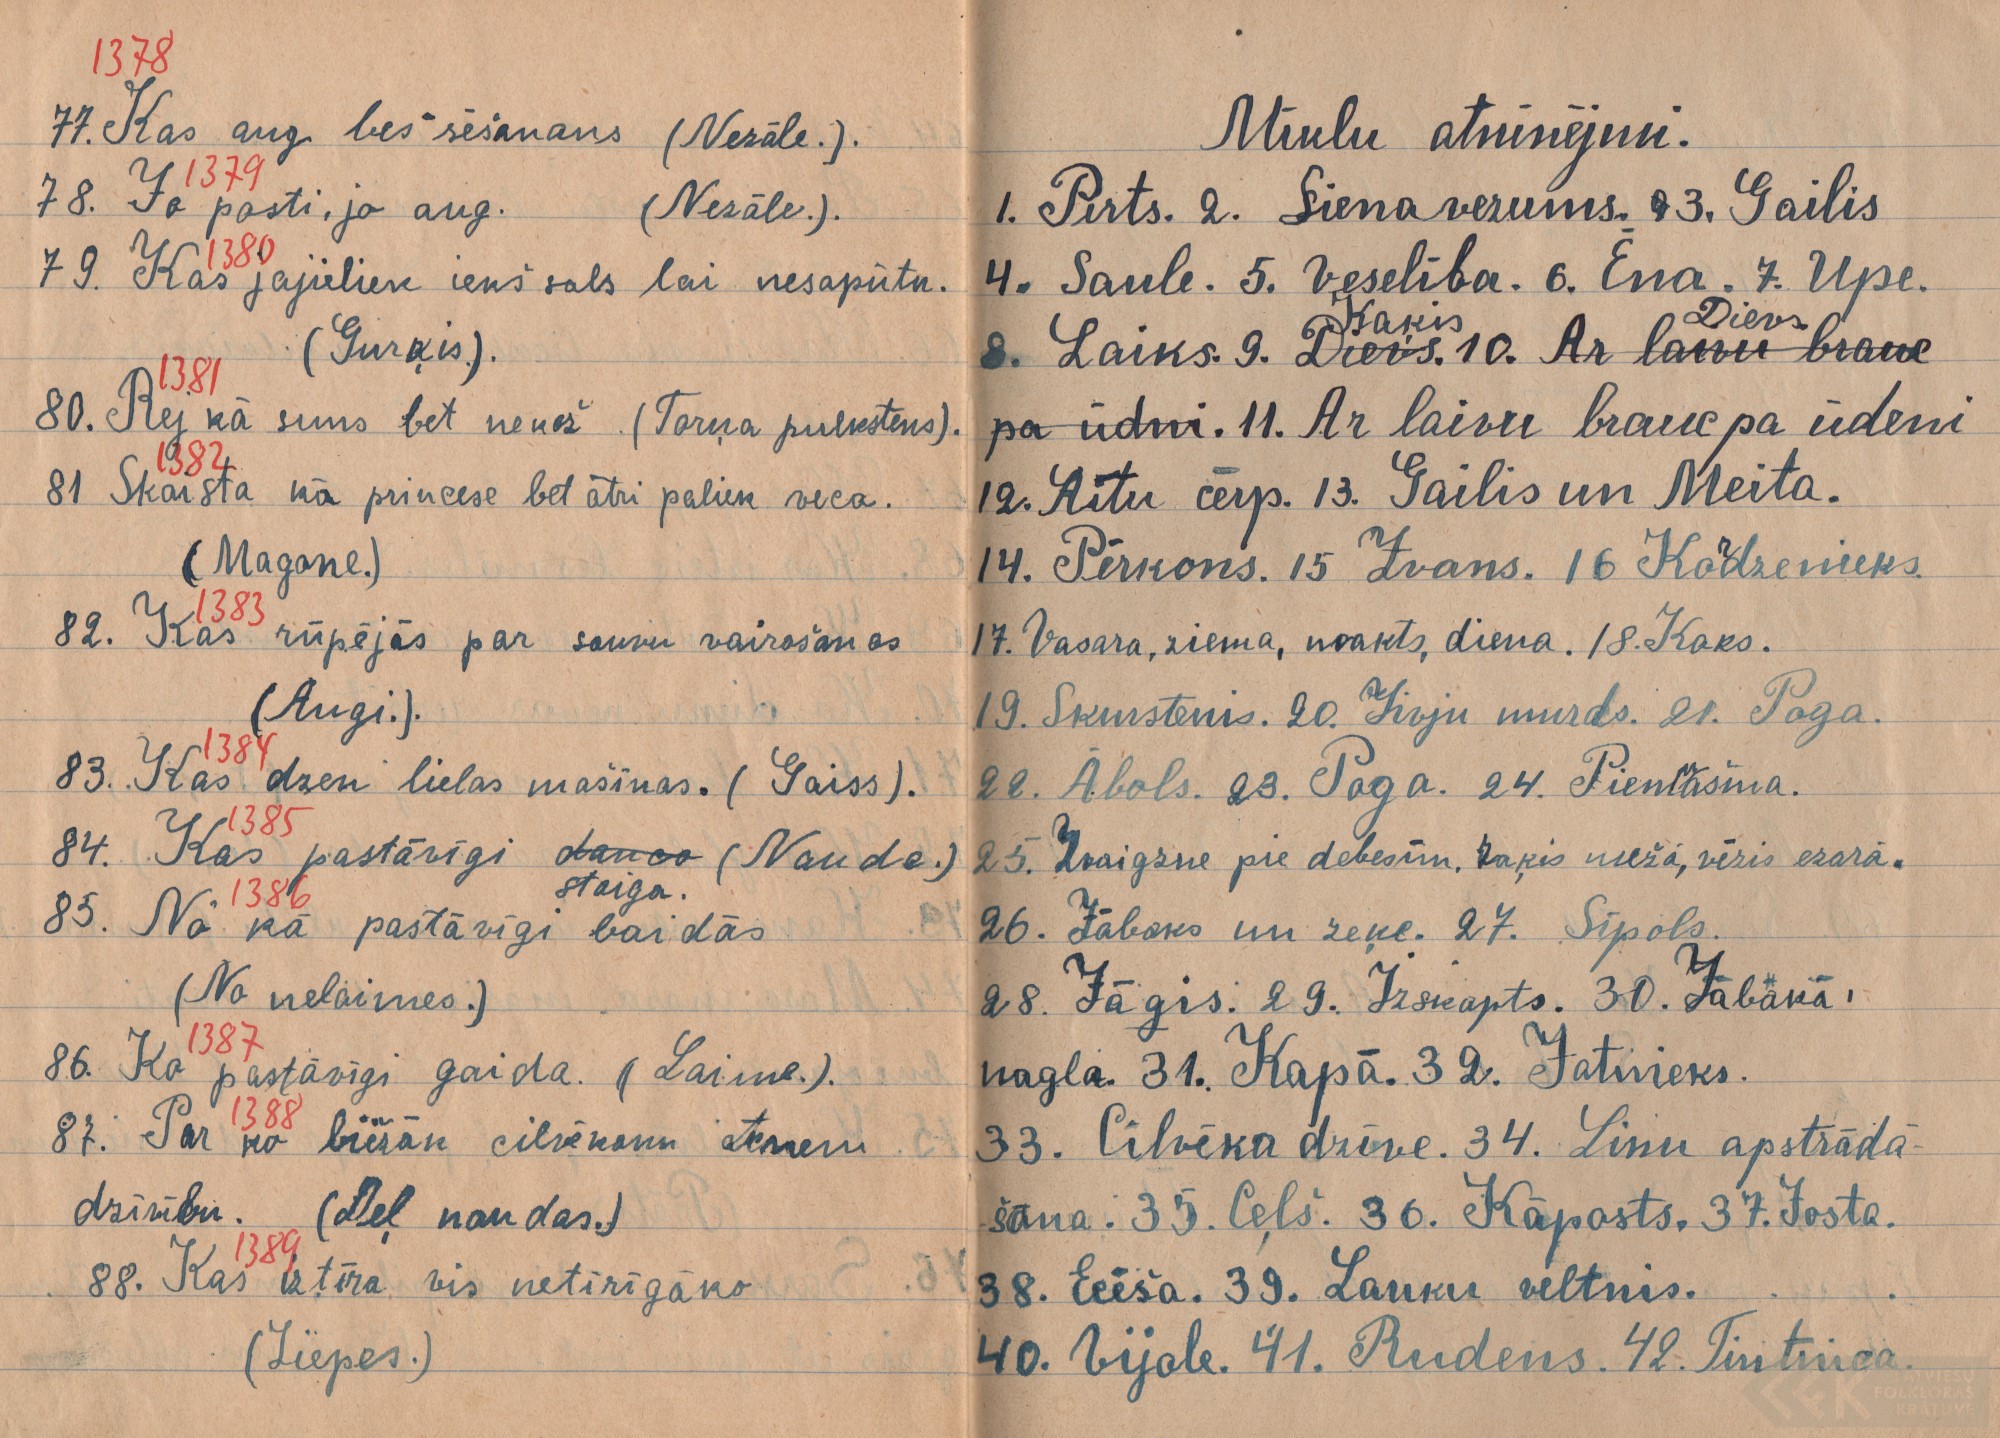 1378
77. Kas aug bes sēšanans (Nezāle.).
1379
78. Jo posti, jo aug. (Nezāle.).
1380
79. Kas jajieliek iekš sals lai nesapūtu.
(Gurķis.).
1381
80. Rej kā suns bet nekož (Torņa pulkstens).
1382
81 Skaista kā princese bet ātri paliek veca.
(Magone.)
1383
82. Kas rūpējās par sauvu vairošanos
(Augi.).
1384
83. Kas dzen lielas mašīnas. (Gaiss).
1385
84. Kas pastāvīgi danco (Nauda.)
staiga.
1386
85. No kā pastāvīgi baidās
(No nelaimes.)
1387
86. Ko pastāvīgi gaida. (Laime.).
1388
87. Par ko biežāk cilvēkam atņem
dzīvību. (Deļ naudas.)
1389
88. Kas iztīra vis netīrīgāko
(Ziepes.)
Mīklu atminējumi.
1. Pirts. 2. Siena vezums. 3. Gailis
4. Saule. 5. Veselība. 6. Ēna. 7. Upe.
Kaķis Dievs
8. Laiks. 9. Dievs. 10. Ar laivu brauc
pa ūdni. 11. Ar laivu brauc pa ūdeni
12. Aitu cērp. 13. Gailis un Meita.
14. Pērkons. 15 Zvans. 16 Kordzenieks.
17. Vasara, ziema, nakts, diena. 18. Kaķs.
19. Skurstenis. 20. Zivju murds. 21. Poga.
22. Ābols. 23. Poga. 24. Pienmašina.
25. Zvaigzne pie debesīm, zaķis mežā, vēzis ezarā.
26. Zābaks un zeķe. 27. Sīpols.
28. Zāgis. 29. Izskapts. 30. Zābākā
nagla. 31. Kapā. 32. Jatnieks.
33. Cilvēka dzīve. 34. Linu apstrādā-
šana. 35. Ceļš. 36. Kāposts. 37. Josta.
38. Ecēša. 39. Lauku veltnis.
40. Vijole. 41. Rudens. 42. Tintnica.
LATVIEŠU
FOLKLORAS
KRĀTUVE